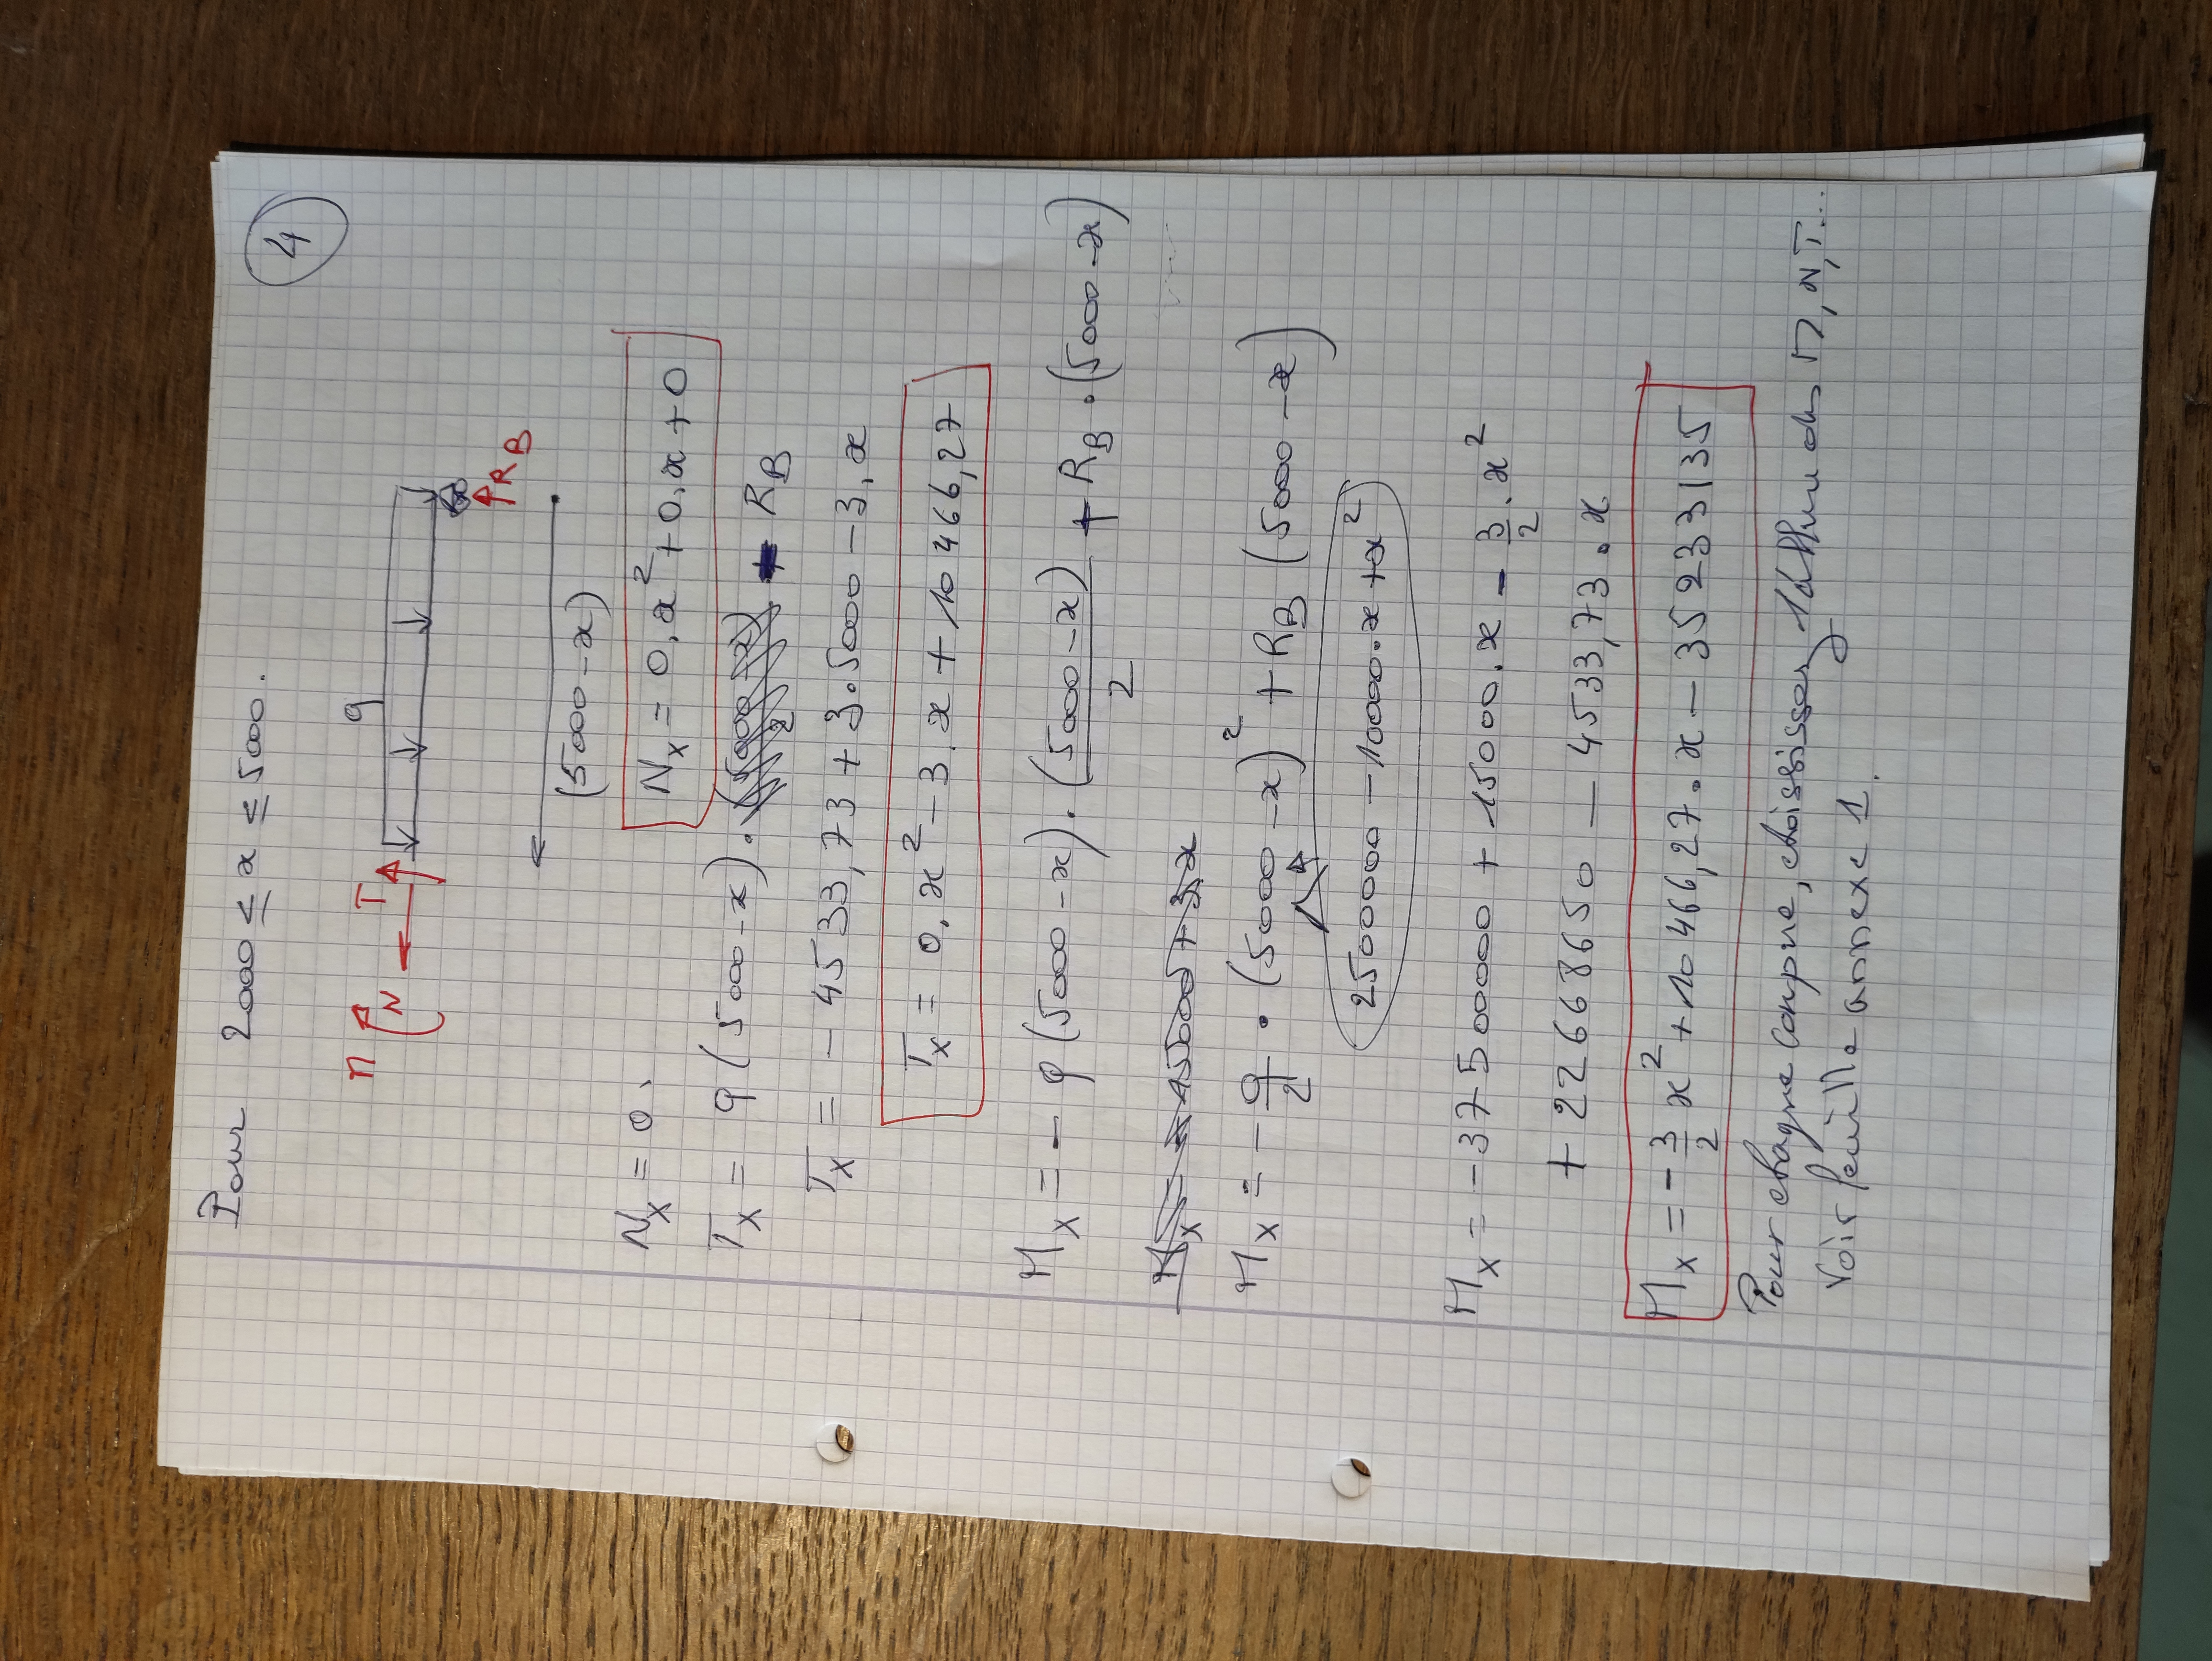 4
Pour 2000 ≤ x ≤ 5000.
q
M N T
R_B
(5000-x)
N_x = 0, N_x = 0.x² + 0.x + 0
T_x = q(5000-x). - R_B
T_x = -4533,73 + 3.5000 - 3.x
T_x = 0.x² - 3.x + 10466,27
M_x = - q(5000-x).(5000-x)/2 + R_B.(5000-x)
M_x = - q/2 . (5000-x)² + R_B (5000-x)
25000000 - 10000.x + x²
M_x = -37500000 + 15000.x - 3/2.x²
+ 22668650 - 4533,73.x
M_x = -3/2 x² + 10466,27.x - 35233135
Pour chaque coupure, choisissez, l'allure de M, N, T...
Voir feuille annexe 1.